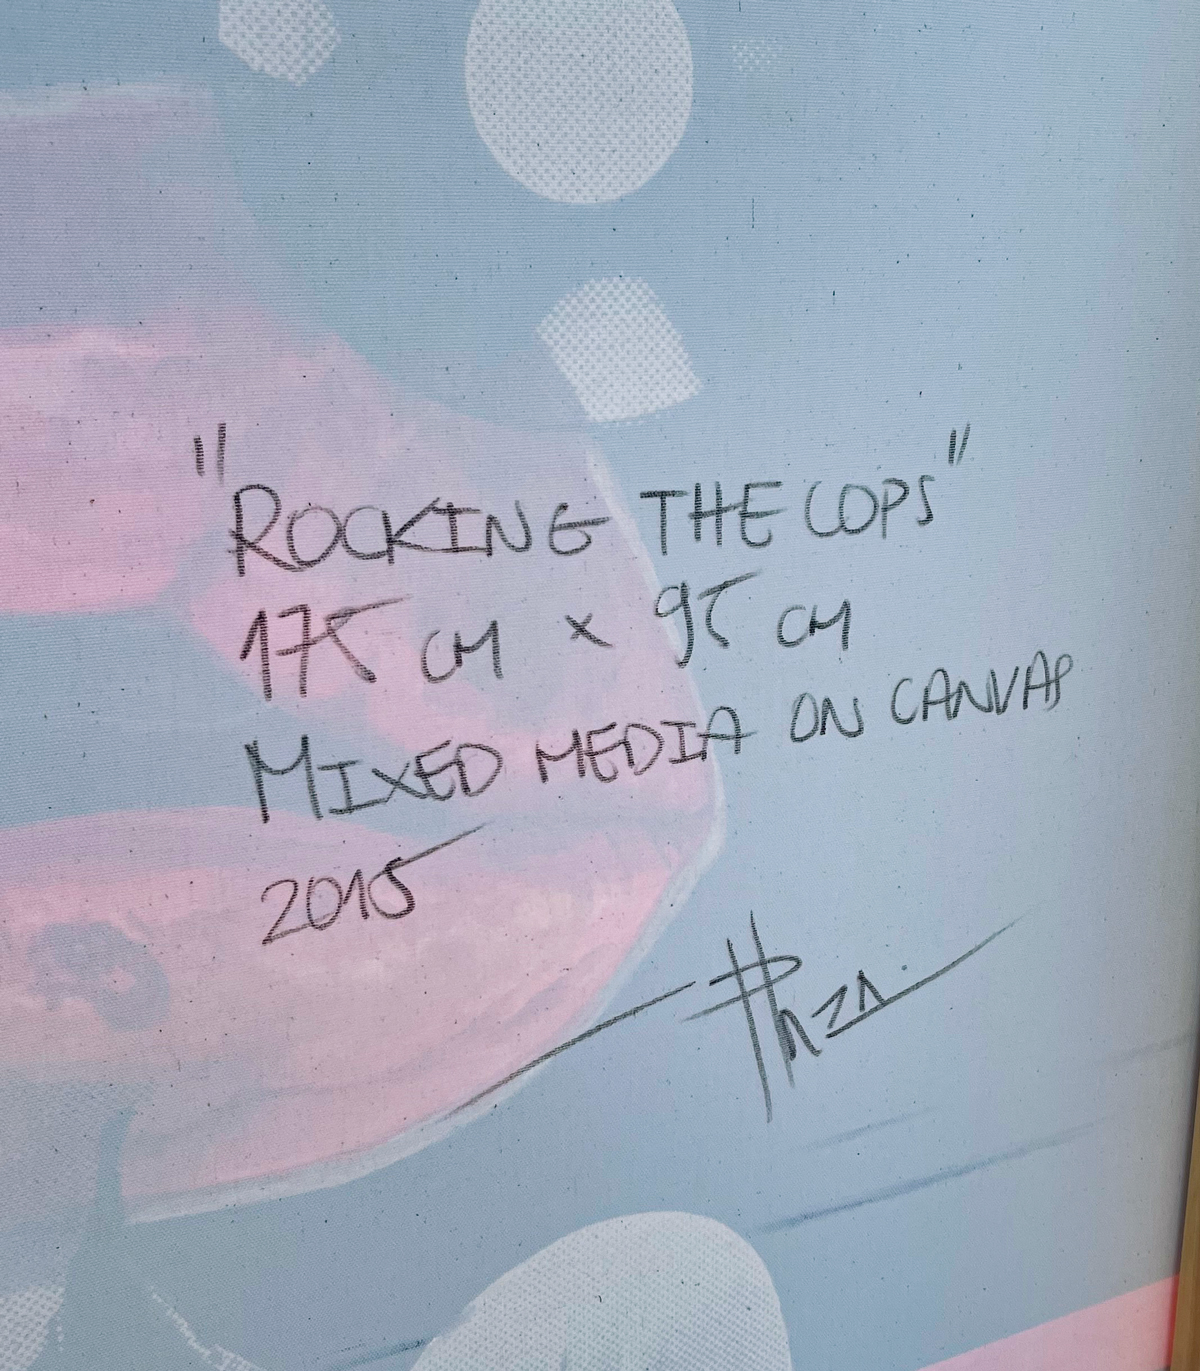 "ROCKING THE COPS"
175 CM x 95 CM
MIXED MEDIA ON CANVAS
2015